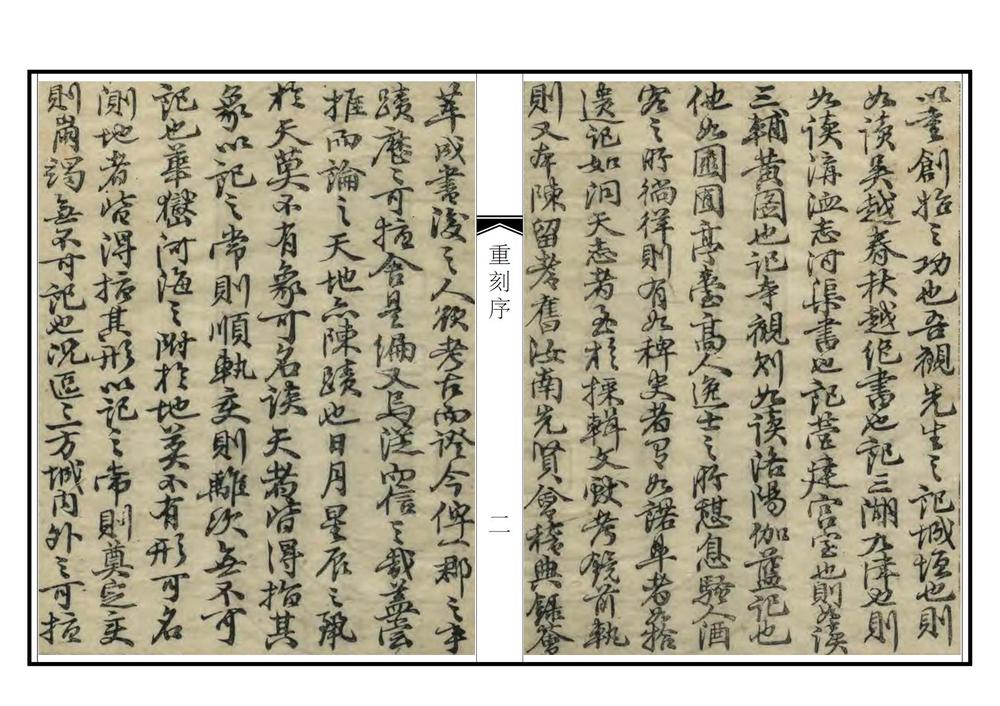 以重創始之功也吾觀先生之記城垣也則
如讀吳越春秋越絕書也記三湖九澤也則
如讀溝洫志河渠書也記營建宮室也則如讀
三輔黃圖也記寺觀則如讀洛陽伽藍記也
他如園囿亭臺高人逸士之所憩息騷人酒
客之所徜徉則有如稗史者有如諾皋者若拾
遺記如洞天志者至於採輯文獻考鏡前執
則又本陳留耆舊汝南先賢會稽典錄薈
重刻序
二
萃成書後之人欲考古而證今俾一郡之事
蹟歷歷可指舍是編又烏從而信之哉蓋嘗
推而論之天地亦陳蹟也日月星辰之
於天莫不有象可名談天者皆得指其
象以記之常則順軌變則離次無不可
記也華嶽河海之附於地莫不有形可名
測地者皆得指其形以記之常則奠定變
則崩竭無不可記也況區區方城內外之可指